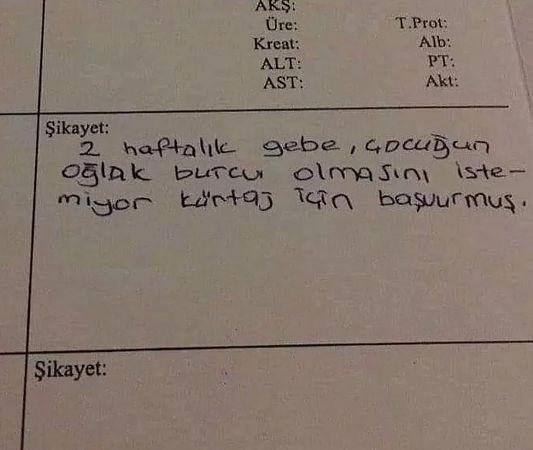 AKŞ:
Üre: T.Prot:
Kreat: Alb:
ALT: PT:
AST: Akt:
Şikayet:
2 haftalık gebe, çocuğun
oğlak burcu olmasını iste-
miyor kürtaj için başvurmuş.
Şikayet: